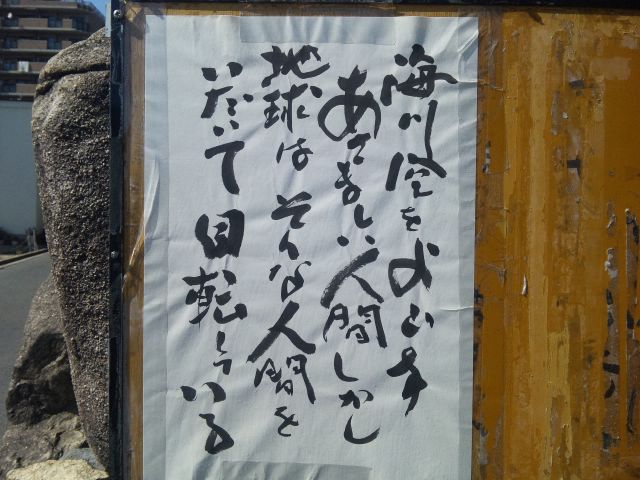 海川空をよごす
あさましい人間しかし
地球はそんな人間を
いだいて自転している